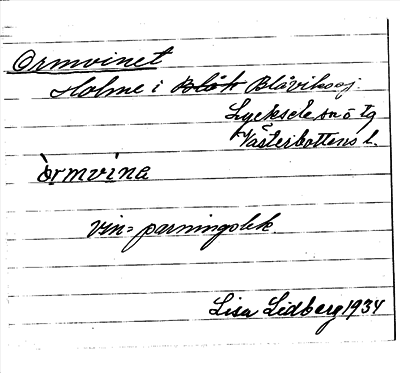 Ormvinet
Holme i Blåvikssj.
Lycksele sn ö tg
Västerbottens l.
òrmvína
vin = parningslek
Lisa Lidberg 1934